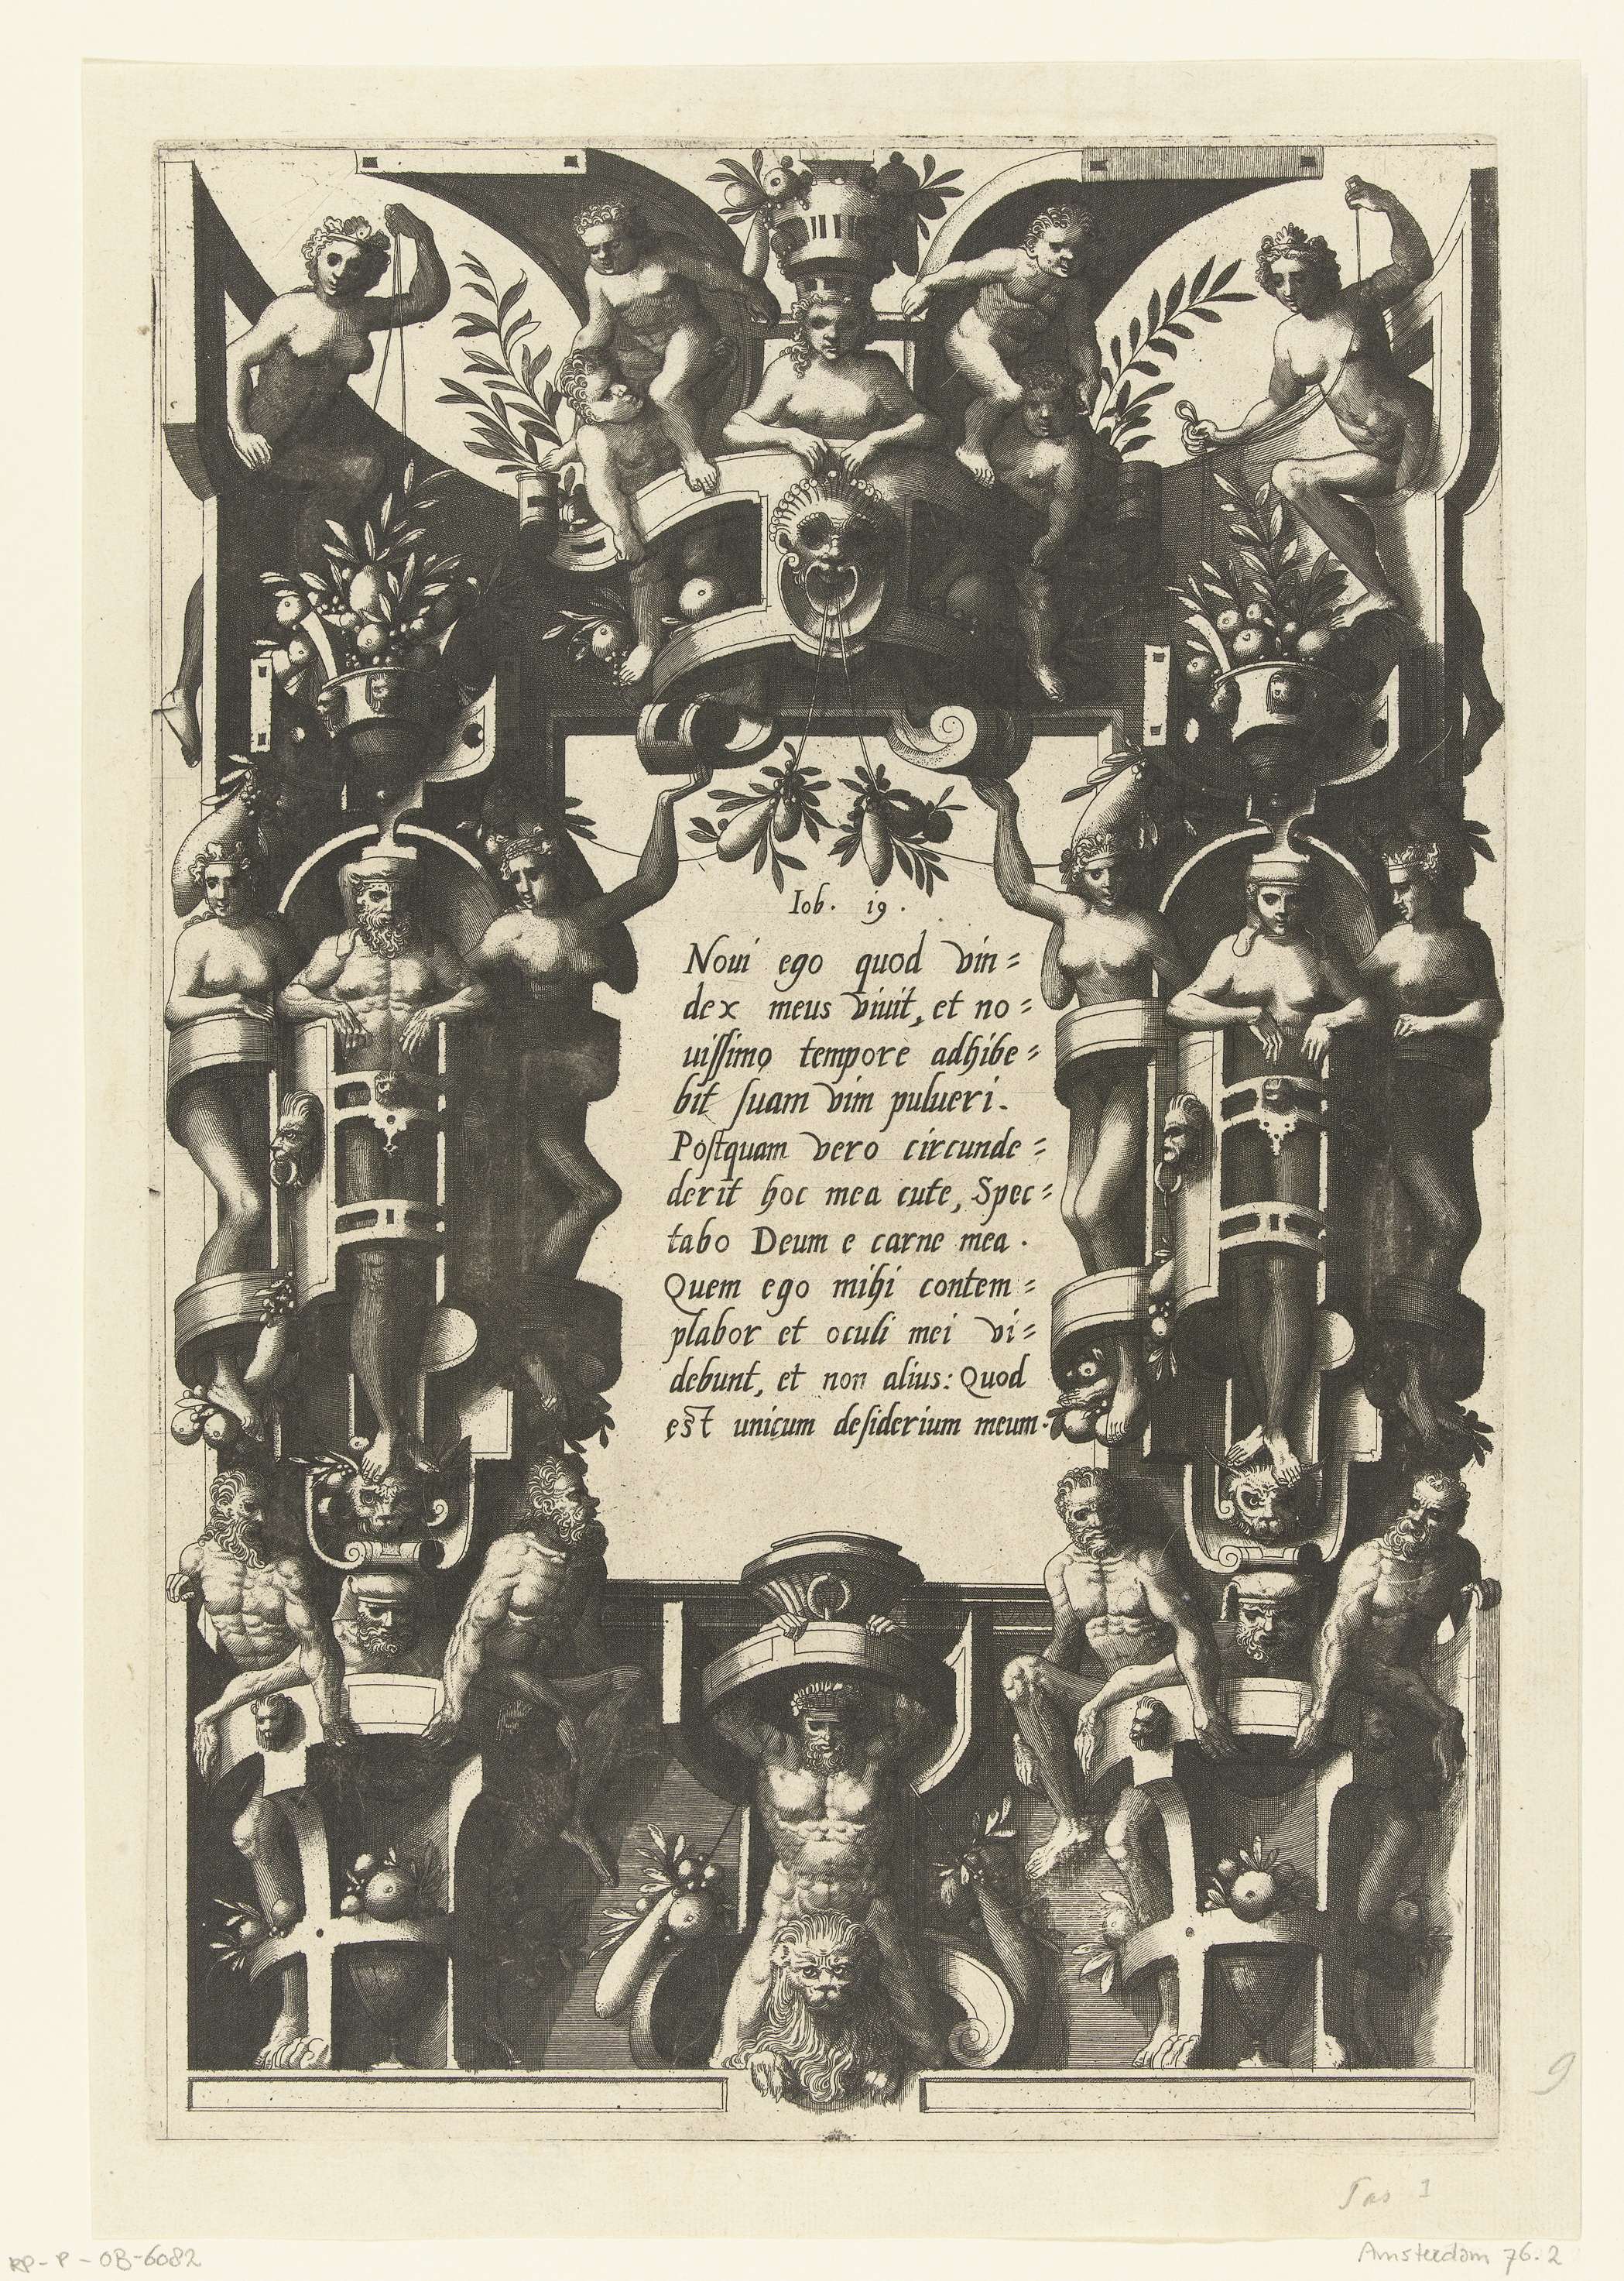 Iob. 19.
Noui ego quod vin=
dex meus viuit, et no=
uiſſimo tempore adhibe=
bit ſuam vim pulueri.
Poſtquam vero circunde=
derit hoc mea cute, Spec=
tabo Deum e carne mea.
Quem ego mihi contem=
plabor et oculi mei vi=
debunt, et non alius: Quod
est unicum deſiderium meum.
9
1
RP-P-OB-6082
Amsterdam 76.2